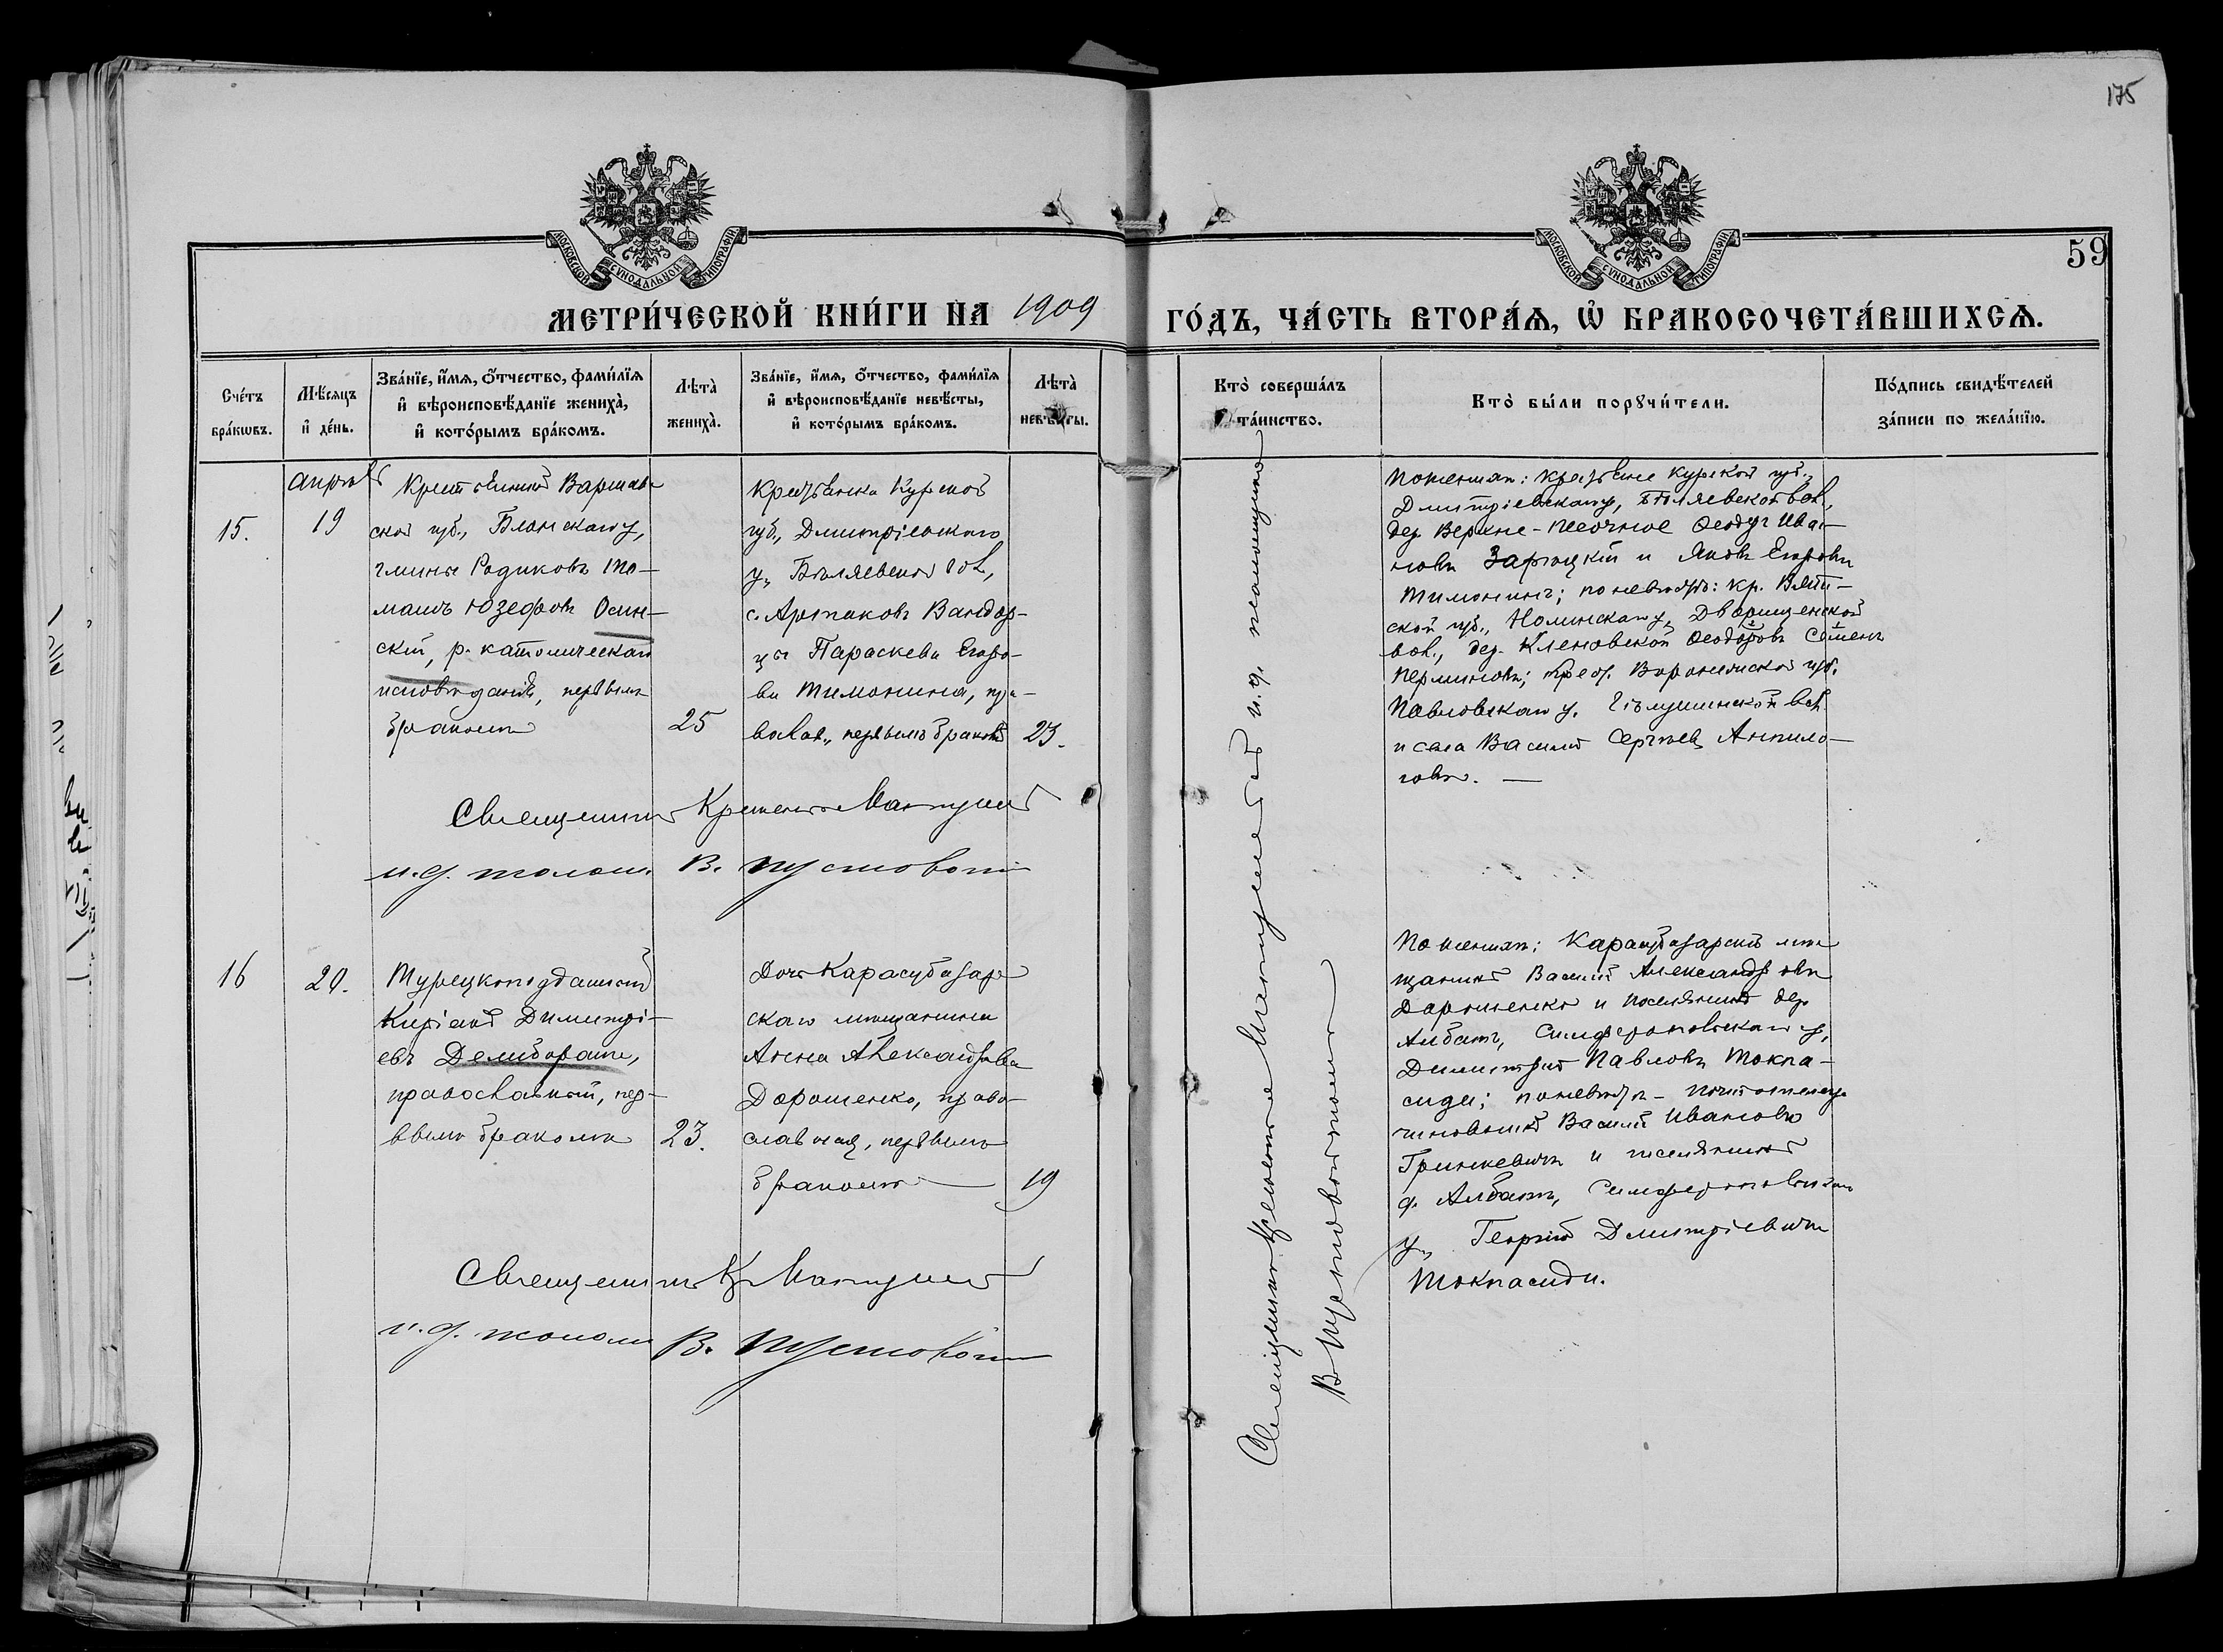 175
МОСКОВСКОЙ СѴНОДАЛЬНОЙ ТИПОГРАФІИ.
МОСКОВСКОЙ СѴНОДАЛЬНОЙ ТИПОГРАФІИ.
59
МЕТРИ́ЧЕСКОЙ КНИ́ГИ НА 1909 ГО́ДЪ, ЧА́СТЬ ВТОРА́Ѧ, Ѡ҆ БРАКОСОЧЕТА́ВШИХСѦ.
Сче́тъ
бра́кѡвъ.
Мѣ́сяцъ
и҆ де́нь.
Зва́нїе, и҆́мѧ, о҆́тчество, фами́лїѧ
и҆ вѣроисповѣ́данїе жениха̀,
и҆ кото́рымъ бра́комъ.
Лѣ́та̀
жениха̀.
Зва́нїе, и҆́мѧ, о҆́тчество, фами́лїѧ
и҆ вѣроисповѣ́данїе невѣ́сты,
и҆ кото́рымъ бра́комъ.
Лѣ́та̀
невѣ́сты.
Кто̀ соверша́лъ
та́инство.
Кто̀ бы́ли порꙋчи́тели.
По́дпись свидѣ́телей
за́писи по жела́нїю.
15.
Апрѣль
19
Крестьянинъ Варшав-
ской губ., Блонскаго у,
гмины Радиковъ То-
машъ Юзефовъ Осин-
скій, р. католическаго
исповѣданія, первымъ
бракомъ
25
Крестьянка Курской
губ., Дмитріевскаго
у., Бѣляевской вол.,
с. Артаковъ
Параскева Егоро-
ва Тимонина, пра-
восл., первымъ бракомъ
23.
По женихѣ: крестьяне Курской губ.,
Дмитріевскаго у, Бѣляевской вол,
дер. Верхне-Песочное Ѳеодулъ Ива-
новъ Зарѣцкій и Яковъ Егоровъ
Тимонинъ; по невѣстѣ: кр. Вят-
ской губ., Нолинскаго у, Дворищенской
вол., дер. Кленовской Ѳеодоровъ Семенъ
Перминовъ; Воронежской губ.
Павловскаго у. вол.
и села Василій Сергѣевъ Анпило-
говъ. —
Священникъ Матушевъ
и. д. псалом. В.
16
20.
Турецкоподданный
Киріакъ Димитрі-
евъ
православный, пер-
вымъ бракомъ
23.
Дочь Карасубазар-
скаго мѣщанина
Анна Александрова
Дорошенко, право-
славная, первымъ
бракомъ —
19
По женихѣ: Карасубазарскій мѣ-
щанинъ Василій Александровъ
Дорошенко и поселянинъ дер.
Албатъ, Симферопольскаго у,
Димитрій Павловъ Токпа-
сиди; по невѣстѣ —
чиновникъ Василій Ивановъ
Гринкевичъ и поселянинъ
д. Албатъ, Симферопольскаго
у., Георгій Дмитріевичъ
Токпасиди.
Священникъ К Матушевъ
и. д. псалом В.
Священникъ Матушевъ и. д. псаломщика